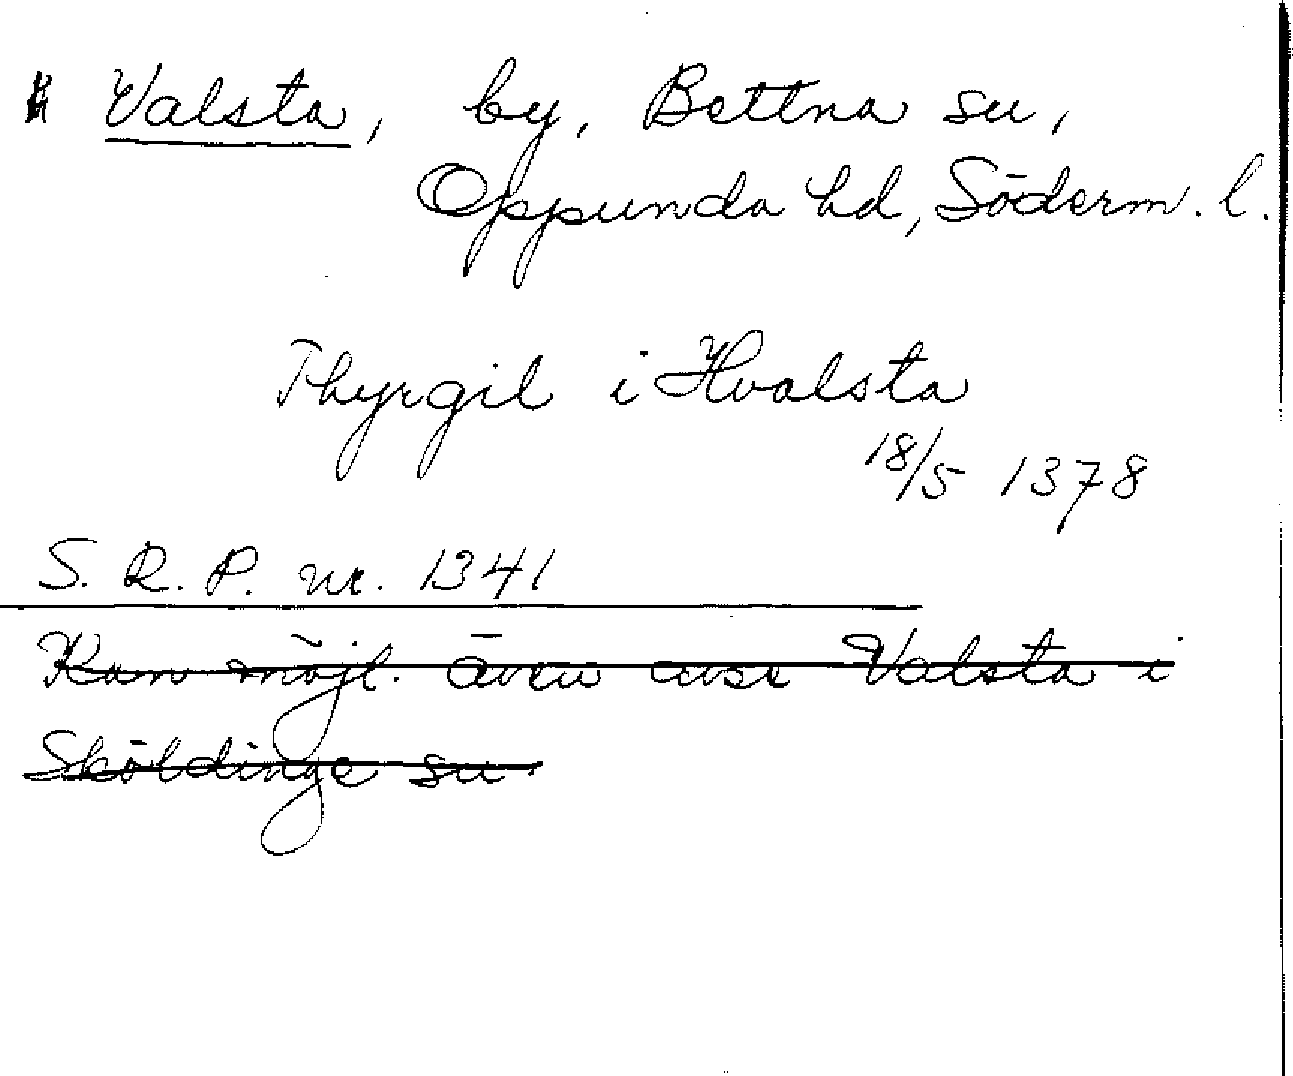 Valsta, by, Bettna sn,
Oppunda hd, Söderm. l.
Thyrgil i Hvalsta
18/5 1378
S. R. P. nr. 1341
Kan möjl. även avse Valsta i
Sköldinge sn.